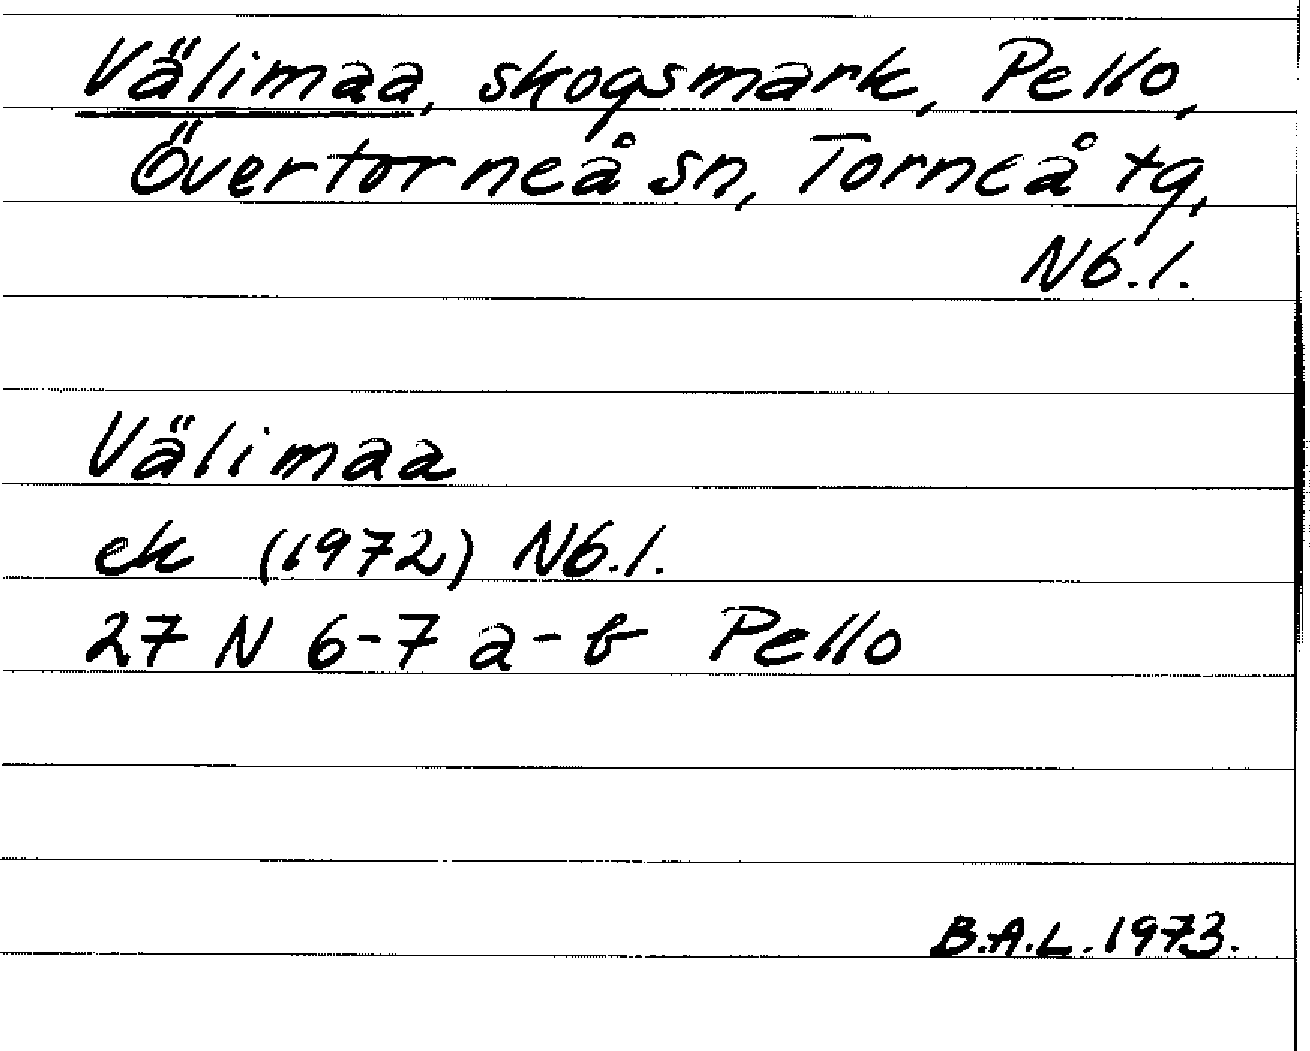 Välimaa, skogsmark, Pello,
Övertorneå sn, Torneå tg,
Nb.l.
Välimaa
ek (1972) Nb.l.
27 N 6-7 a-b Pello
B.A.L. 1973.